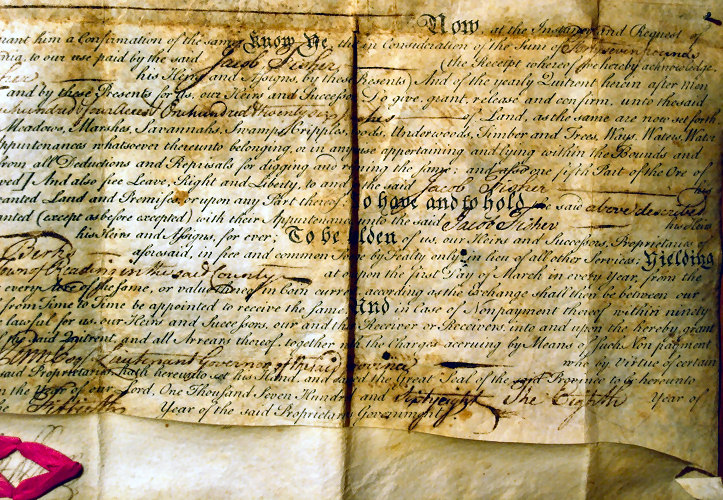 Now, at the Instance and Request of
grant him a Confirmation of the same, Know Ye, that in Consideration of the Sum of Forty seven pounds
to our use paid by the said Jacob Fisher (the Receipt whereof we hereby acknowledge
his Heirs and Assigns, by these Presents) And of the yearly Quitrent herein after men
and by these Presents for us, our Heirs and Successors, Do give, grant, release and confirm, unto the said
hundred & four Acres & One hundred & twenty Perches of Land, as the same are now set forth
Meadows, Marshes, Savannahs, Swamps, Cripples, Woods, Underwoods, Timber and Trees, Ways, Waters, Water
Appurtenances whatsoever thereunto belonging, or in any wise appertaining and lying within the Bounds and
from all Deductions and Reprisals for digging and refining the same; and also one fifth Part of the Ore of
ved] And also free Leave, Right and Liberty, to and for the said Jacob Fisher his
ranted Land and Premises, or upon any Part thereof To have and to hold the said above described
anted (except as before excepted) with their Appurtenances unto the said Jacob Fisher his Heirs
his Heirs and Assigns, for ever; To be holden of us, our Heirs and Successors, Proprietaries of
Berks aforesaid, in free and common Socage by Fealty only, in lieu of all other Services; Yielding
own of Reading in the said County at or upon the first Day of March in every Year, from the
every Acre of the same, or value thereof in Coin current, according as the Exchange shall then be between our
from Time to Time be appointed to receive the same. And in Case of Nonpayment thereof within ninety
lawful for us, our Heirs and Successors, our and their Receiver or Receivers, into and upon the hereby grant
the said Quitrent, and all Arrears thereof, together with the Charges accruing by Means of such Nonpayment
Lieutenant Governor of the said Province who by Virtue of certain
said Proprietaries, hath hereunto set his Hand, and caused the Great Seal of the said Province to be hereunto
in the Year of our Lord, One Thousand Seven Hundred and Sixty eight The Eighth Year of
Year of the said Proprietary Government.